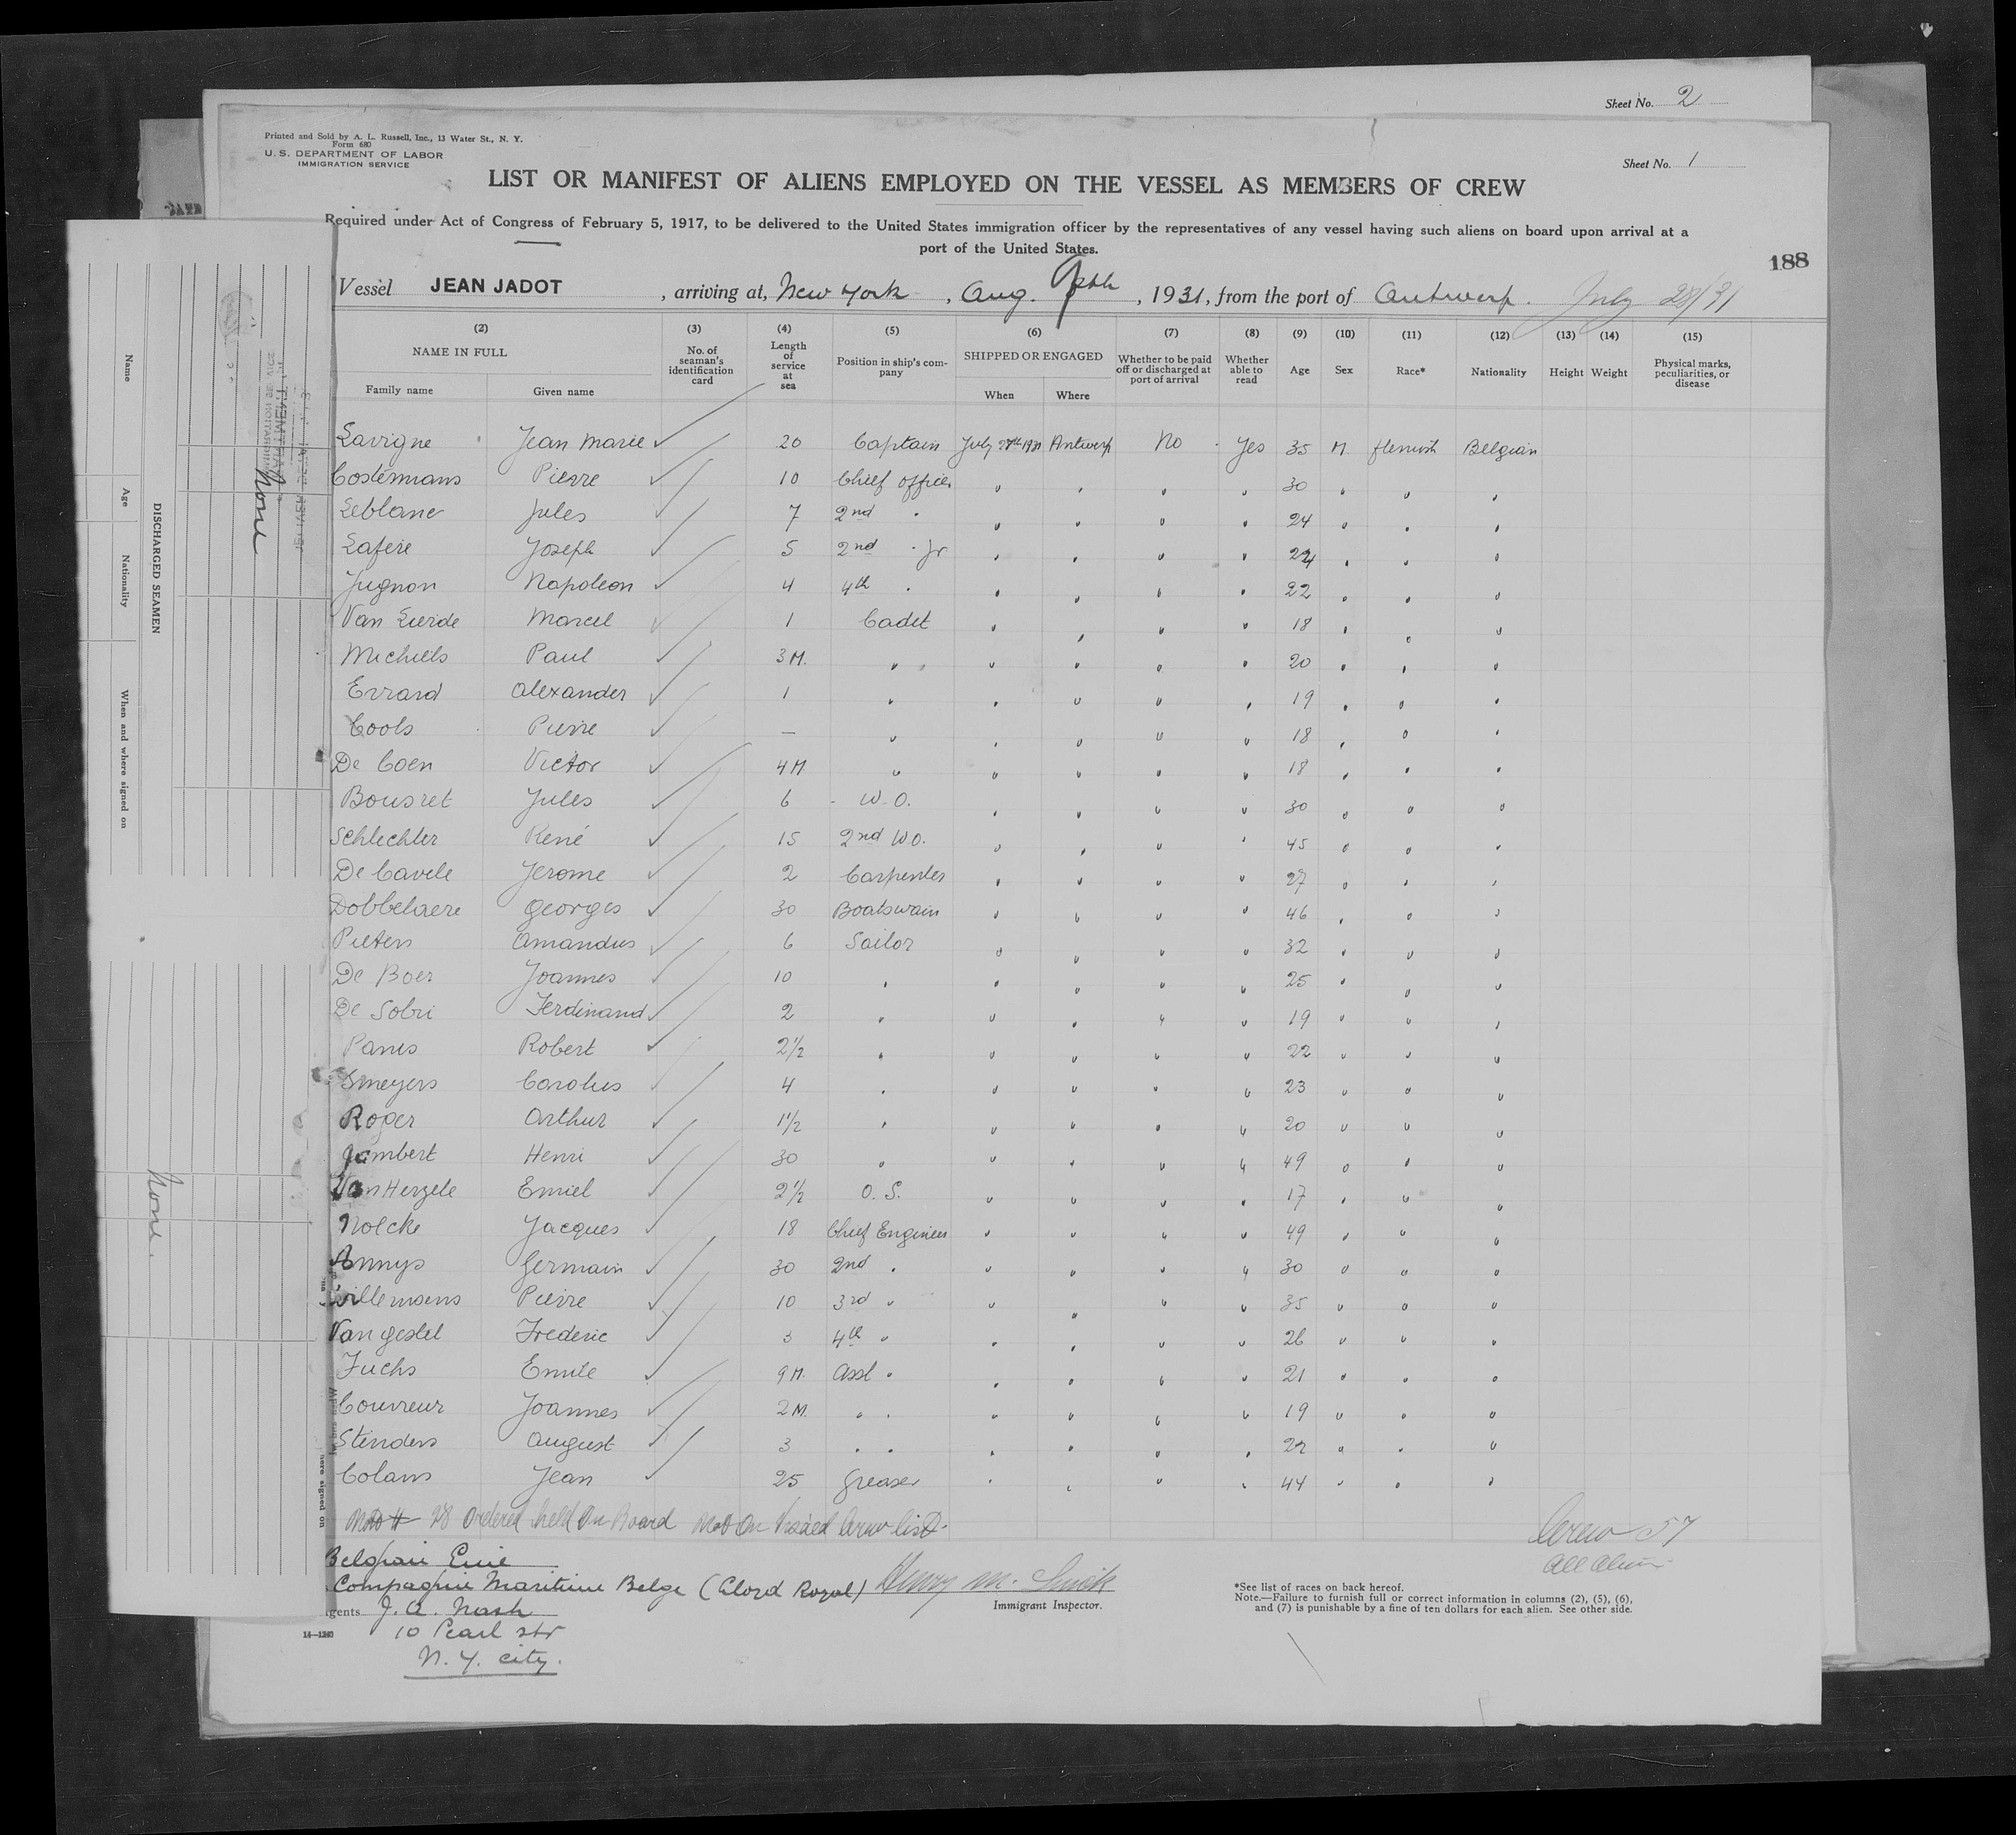 Sheet No. 2
Printed and Sold by A. L. Russell, Inc., 13 Water St., N. Y.
Form 680
U. S. DEPARTMENT OF LABOR
IMMIGRATION SERVICE
Sheet No. 1
LIST OR MANIFEST OF ALIENS EMPLOYED ON THE VESSEL AS MEMBERS OF CREW
Required under Act of Congress of February 5, 1917, to be delivered to the United States immigration officer by the representatives of any vessel having such aliens on board upon arrival at a
port of the United States.
188
Vessel JEAN JADOT, arriving at, New York, Aug. 1931, from the port of Antwerp. July 28/31
(2) (3) (4) (5) (6) (7) (8) (9) (10) (11) (12) (13) (14) (15)
NAME IN FULL No. of seaman's identification card Length of service at sea Position in ship's company SHIPPED OR ENGAGED Whether to be paid off or discharged at port of arrival Whether able to read Age Sex Race* Nationality Height Weight Physical marks, peculiarities, or disease
Family name Given name When Where
Lavigne Jean Marie 20 Captain July 27th 1931 Antwerp No Yes 35 M. flemish Belgian
Costermans Pierre 10 Chief officer " " " " 30 " " "
Leblanc Jules 7 2nd " " " " " 24 " " "
Lafere Joseph 5 2nd " Jr " " " " 24 " " "
Jugnon Napoleon 4 4th " " " " " 22 " " "
Van Lierde Marcel 1 Cadet " " " " 18 " " "
Michiels Paul 3 M. " " " " " 20 " " "
Errard Alexander 1 " " " " " 19 " " "
Cools Pierre — " " " " " 18 " " "
De Coen Victor 4 M. " " " " " 18 " " "
Bousret Jules 6 W.O. " " " " 30 " " "
Schlechter René 15 2nd W.O. " " " " 45 " " "
De Cavele Jerome 2 Carpenter " " " " 27 " " "
Dobbelaere Georges 30 Boatswain " " " " 46 " " "
Pieters Amandus 6 Sailor " " " " 32 " " "
De Boer Joannes 10 " " " " " 25 " " "
De Sobri Ferdinand 2 " " " " " 19 " " "
Panis Robert 2½ " " " " " 22 " " "
Smeyers Carolus 4 " " " " " 23 " " "
Roger Arthur 1½ " " " " " 20 " " "
Jambert Henri 30 " " " " " 49 " " "
Van Herzele Emiel 2½ O. S. " " " " 17 " " "
Nolcke Jacques 18 Chief Engineer " " " " 49 " " "
Annys Germain 30 2nd " " " " " 30 " " "
Willemsens Pierre 10 3rd " " " " " 35 " " "
Van gestel Frederic 3 4th " " " " " 26 " " "
Fuchs Emile 9 M. Asst " " " " " 21 " " "
Couvreur Joannes 2 M. " " " " " " 19 " " "
Stenders August 3 " " " " " " 22 " " "
Colans Jean 25 Greaser " " " " 44 " " "
28 Ordered held On Board Not On Visaed Crew list.
Crew 57
All Alien
Belgian Line
Compagnie Maritime Belge (Lloyd Royal)
Henry M.
Immigrant Inspector.
gents J. A. Nash
10 Pearl str
N. Y. city.
14—1240
*See list of races on back hereof.
Note.—Failure to furnish full or correct information in columns (2), (5), (6),
and (7) is punishable by a fine of ten dollars for each alien. See other side.
DISCHARGED SEAMEN
Name
Age
Nationality
When and where signed on
None
None.